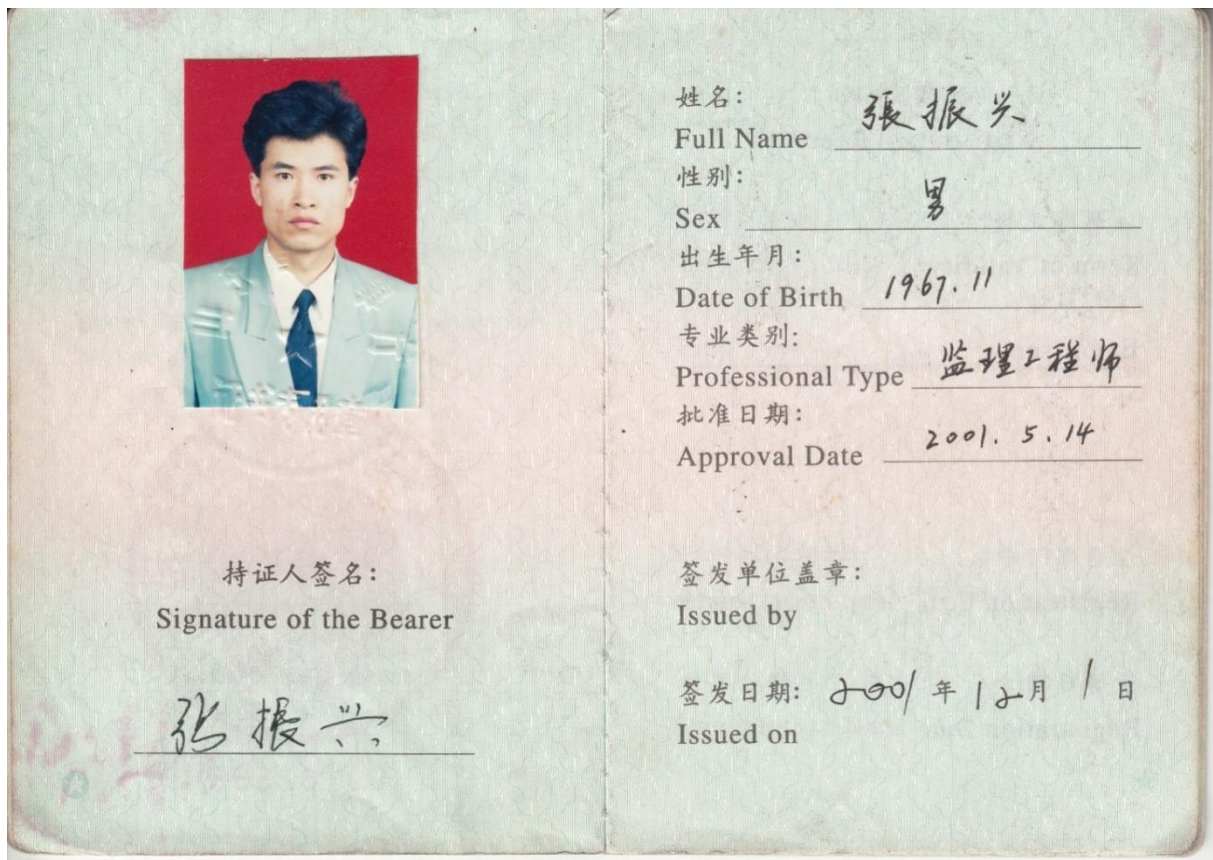 持证人签名:
Signature of the Bearer
张振兴
姓名:
Full Name 張振兴
性别:
Sex 男
出生年月:
Date of Birth 1967.11
专业类别:
Professional Type 监理工程师
批准日期:
Approval Date 2001.5.14
签发单位盖章:
Issued by
签发日期: 2001年12月1日
Issued on